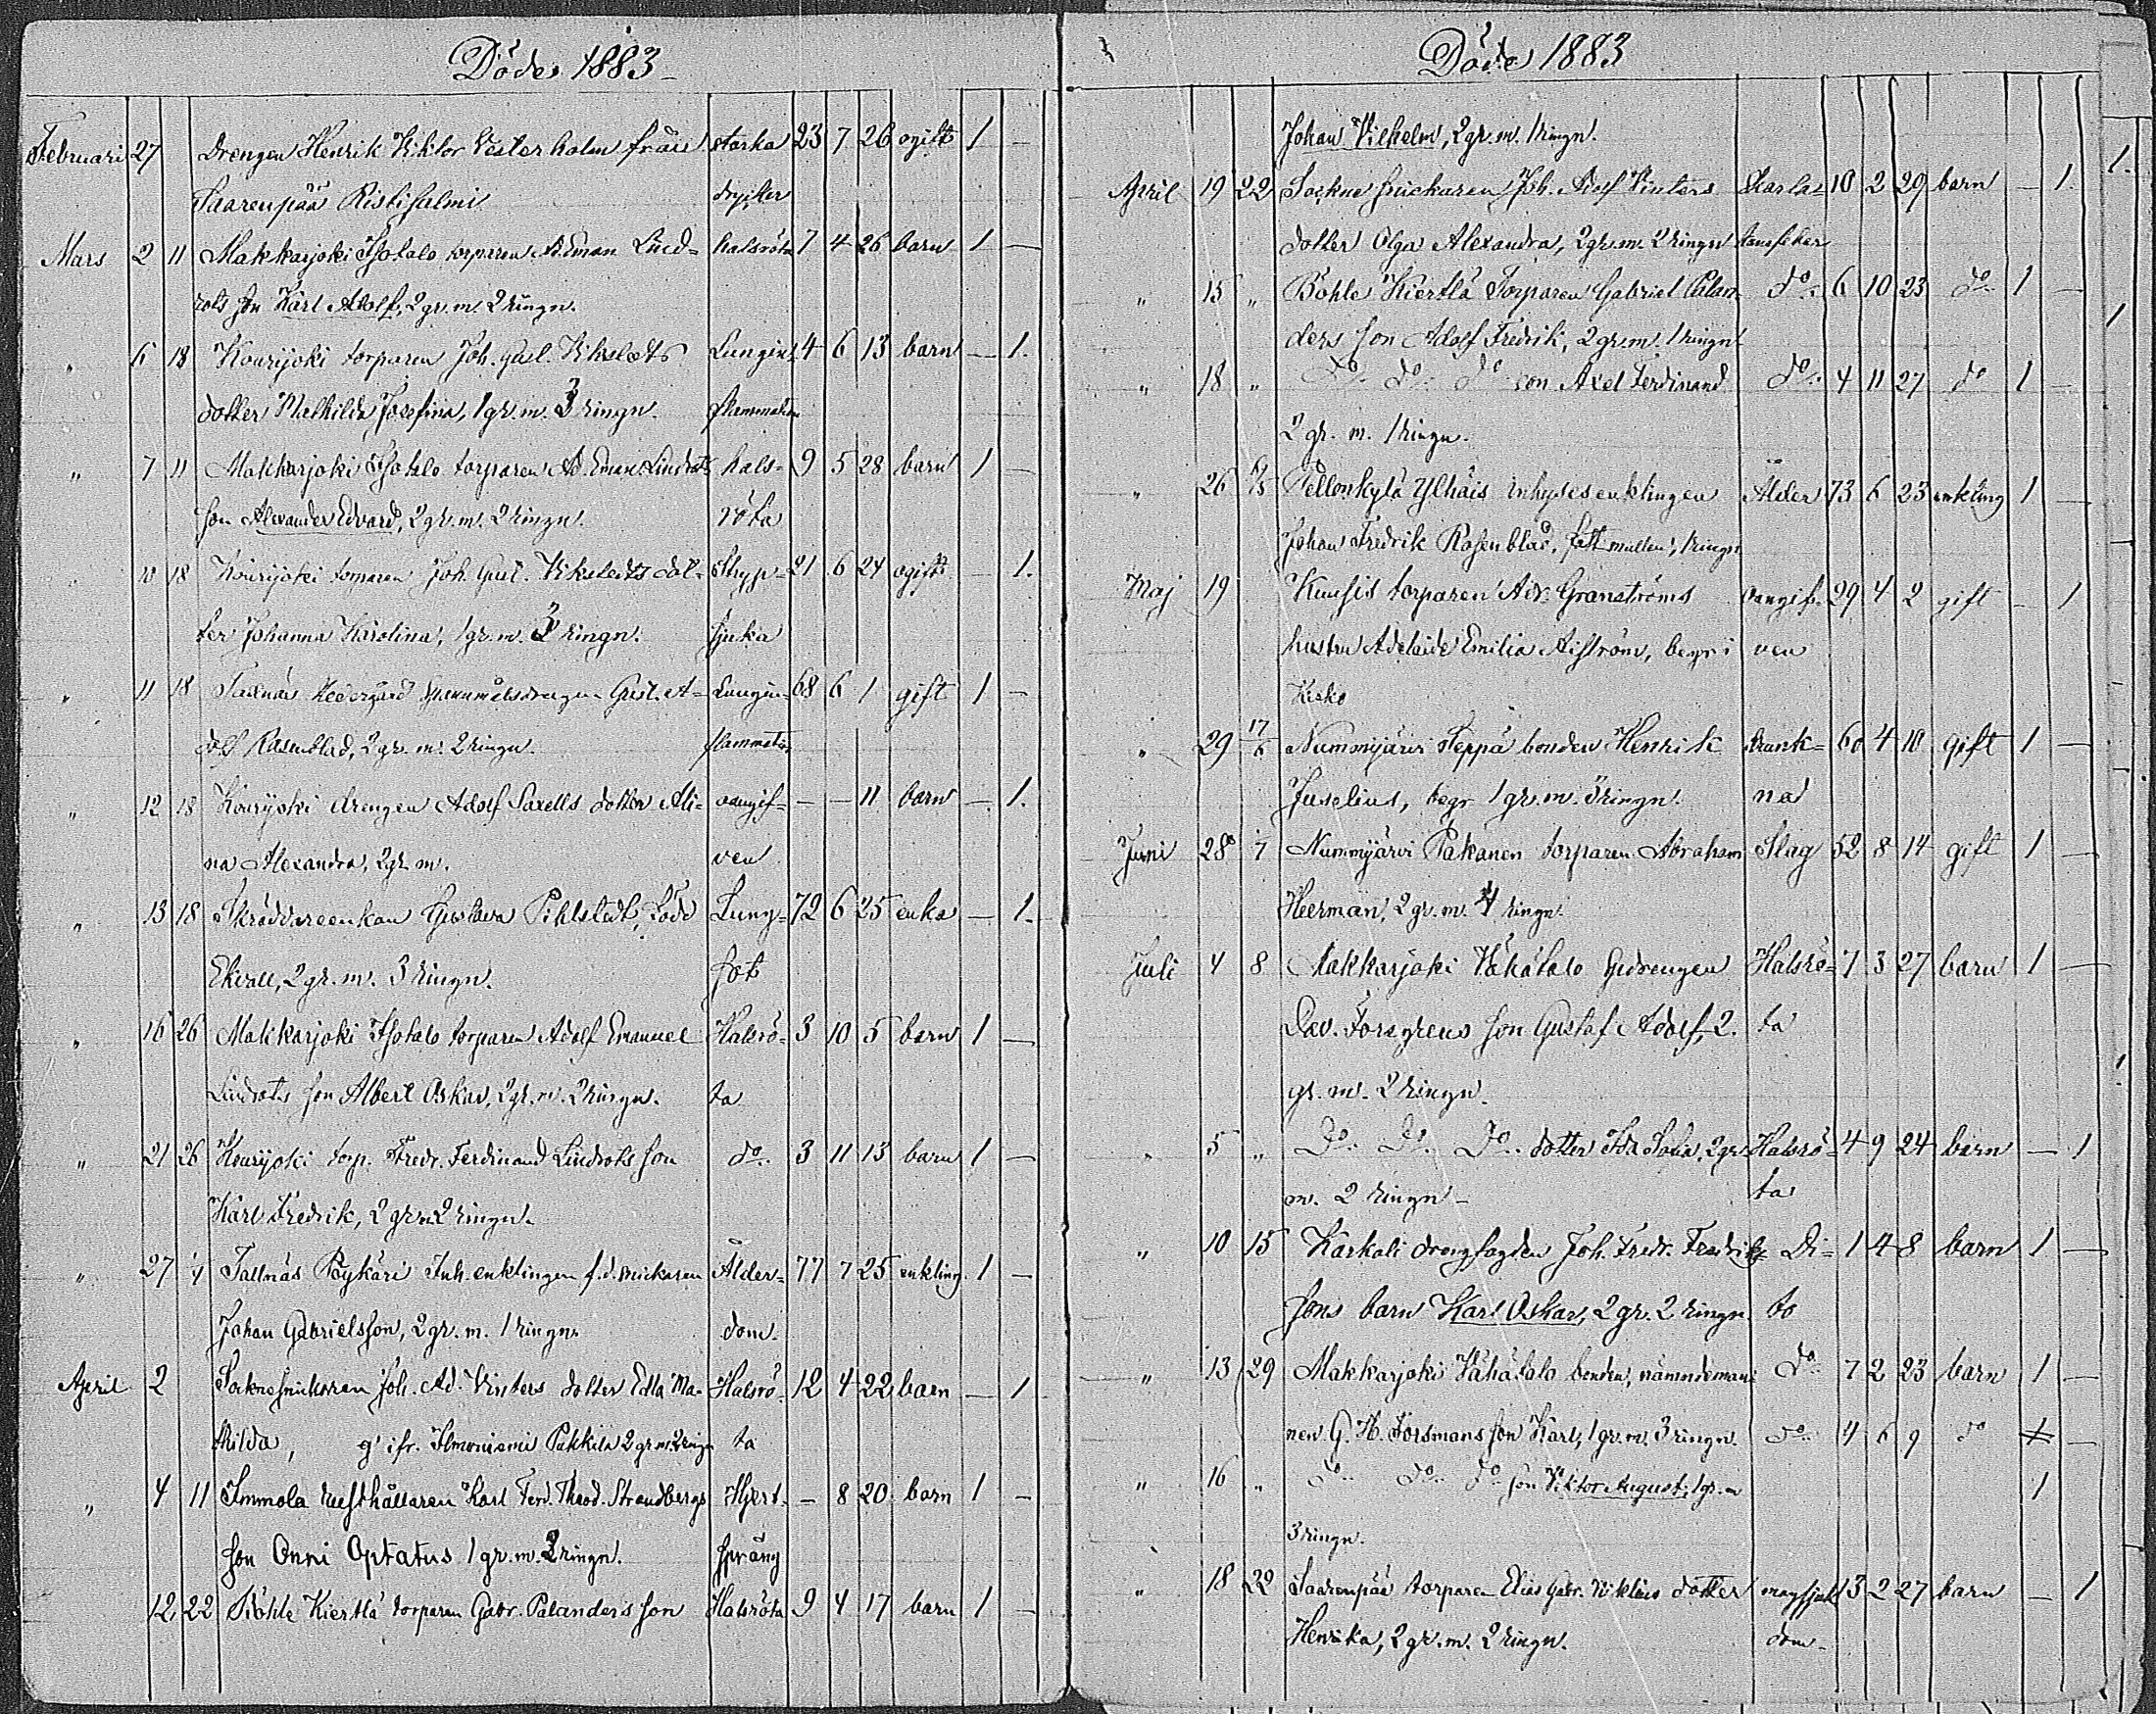 Döde 1883
Februari 27 Drengen Henrik Viktor Vesterholm från starka 23 7 26 ogift 1 –
Saarenpää Ristisalmi drycker
Mars 2 11 Makkarjoki Isotalo torparen Ad. Eman Lind= halsröta 7 4 26 barn 1 –
rots son Karl Adolf, 2 gr. m. 2 ringn.
" 6 18 Kourijoki torparen Joh. Gust. Vikstedts Lungin= 4 6 13 barn – 1.
dotter Mathilda Josefina, 1 gr. m. 3 ringn. flammation
" 7 11 Makkarjoki Isotalo torparen Ad. Eman. Lindrots hals= 9 5 28 barn 1 –
son Alexander Edvard, 2 gr. m. 2 ringn. röta
" 10 18 Kourijoki torparen Joh. Gust. Vikstedts dot= Stryp= 21 6 24 ogift – 1.
ter Johanna Karolina, 1 gr. m. 3 ringn. sjuka
" 11 18 Nedergård Gust. Ad= Lungin= 68 6 1 gift 1 –
olf Rosenblad, 2 gr. m. 2 ringn. flammation
" 12 18 Kourijoki drengen Adolf Saxells dotter Ali= oangif= – – 11 barn – 1.
na Alexandra, 2 gr. m. ven
" 13 18 Skräddareenkan Gustava Pihlstedt, född Lung= 72 6 25 enka – 1.
Ekvall, 2 gr. m. 3 ringn. sot
" 16 26 Makkarjoki Isotalo torparen Adolf Emanuel Halsrö= 3 10 5 barn 1 –
Lindrots son Albert Oskar, 2 gr. m. 2 ringn. ta
" 21 26 Kourijoki torp. Fredr. Ferdinand Lindrots son do. 3 11 13 barn 1 –
Karl Fredrik, 2 gr m 2 ringn.
" 27 Inh. enklingen f.d. snickaren Ålder= 77 7 25 enkling 1 –
Johan Gabrielsson, 2 gr. m. 1 ringn. dom.
April 2 Socknesnickaren Joh. Ad. Vinters dotter Edla Ma= Halsrö= 12 4 22 barn – 1
thilda, Pakkila 2 gr m 2 ringn ta
" 4 11 Immola rusthållaren Karl Ferd. Theod. Strandbergs Hjert= – 8 20 barn 1 –
son Onni Optatus 1 gr. m. 2 ringn. språng
12 22 Böhle Kiertlä torparen Gabr. Palanders son Halsröta 9 4 17 barn 1 –
Döde 1883
Johan Vilhelm, 2 gr. m. 1 ringn.
April 19 22 Sockne snickaren Joh. Adolf Vinters Skarla= 10 2 29 barn – 1.
dotter Olga Alexandra, 2 gr. m. 2 ringn
" 15 " Böhle Kiertlä Torparen Gabriel Palan= do. 6 10 23 do. 1 –
ders son Adolf Fredrik, 2 gr. m. 1 ringn
" 18 " Do. do. do son Axel Ferdinand do. 4 11 27 do 1 –
2 gr. m. 1 ringn.
" 26 Pellonkylä Ylhäis inhysesenklingen Ålder 73 6 23 enkling 1 –
Johan Fredrik Rosenblad, 1 ringn
Maj 19 Kuusis torparen Adr. Granströms oangif= 29 4 2 gift – 1
hustru Adelaide Emilia, begr i ven
Kisko
" 29 17/6 Nummijärvi Seppä bonden Henrik drunk= 60 4 10 gift 1 –
Juselius, begr 1 gr. m. 3 ringn. nad
Juni 28 Nummijärvi Pakanen torparen Abraham Slag 52 8 14 gift 1 –
Heerman, 2 gr. m. 4 ringn.
Juli 4 8 Makkarjoki Vähätalo Gdrengen Halsrö= 7 3 27 barn 1 –
Dav. Forsgrens son Gustaf Adolf, 2. ta
gr. m. 2 ringn.
" 5 " Do. Do. Do. dotter Ida Sofia, 2 gr Halsrö= 4 9 24 barn – 1
m. 2 ringn – ta
" 10 15 Karkali drengfogden Joh. Fredr. Fredriks Di= 1 4 8 barn 1 –
sons barn Karl Oskar, 2 gr. 2 ringn. to
" 13 29 Makkarjoki Vähätalo bonden, nämndeman= do 7 2 23 barn 1 –
nen G. H. Forsmans son Karl, 1 gr. m. 3 ringn. do. 4 6 9 do 1 –
" 16 " do. do. do son Viktor August, 1 gr. m 1
3 ringn.
" 18 22 Saarenpää torparen Elias Gabr. dotter magsjuk 3 2 27 barn – 1
Henrika, 2 gr. m. 2 ringn. dom